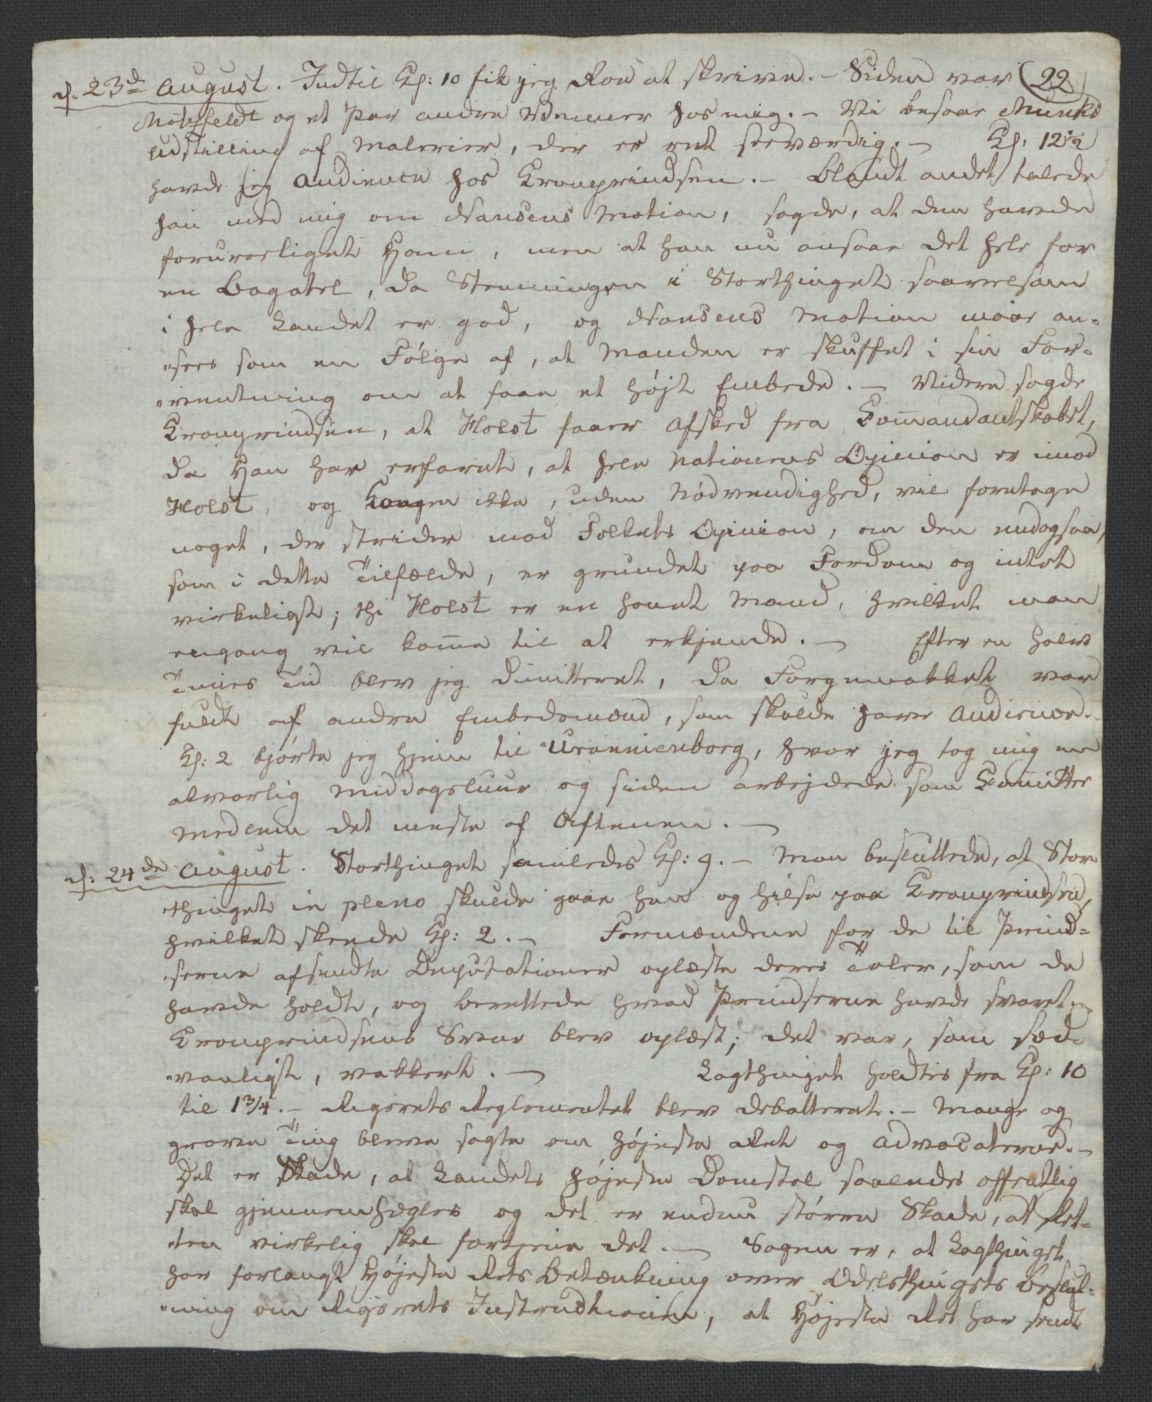 22
d: 23de August. Indtil Kl: 10 fik jeg Roe at skrive. – Siden var
Motzfeldt og et Par andre Venner hos mig. – Vi besaae Munchs
udstilling af Malerier, der er ret seeværdig. – Kl: 12½
havde jeg Audience hos Kronprindsen. – Blandt andet talede
han med mig om Nansens Motion, sagde, at den havde
foruroeliget Ham, men at han nu ansaae det hele for
en Bagatel, da Stemningen i Storthinget saavelsom
i hele Landet er god, og Nansens Motion maae an-
sees som en Følge af, at Manden er skuffet i sin For-
ventning om at faae et højt Embede. – Videre sagde
Kronprindsen, at Holst faaer Afsked fra Commandantskabet,
da Han har erfaret, at hele Nationens Opinion er imod
Holst, og Kongen ikke, uden Nødvendighed, vil foretage
noget, der strider mod Folkets Opinion, om den endogsaa,
som i dette Tilfælde, er grundet paa Fordom og intet
virkeligt; thi Holst er en honet Mand, hvilket man
engang vil komme til at erkjende. – Efter en halv
Times Tid blev jeg dimitteret, da Forgemakket var
fuldt af andre Embedsmænd, som skulde have Audience. –
Kl: 2 kjørte jeg hjem til Uranienborg, hvor jeg tog mig en
alvorlig Middagsluur og siden arbejdede som Committee
Medlem det meste af Aftenen. –
d: 24de August. Storthinget samledes Kl: 9. – Man besluttede, at Stor-
thinget in pleno skulde gaae hen og hilse paa Kronprindsen,
hvilket skeede Kl: 2. – Formændene for de til Prind-
serne afsendte Deputationer oplæste deres Taler, som de
havde holdt, og berettede hvad Prindserne havde svaret.
Kronprindsens Svar blev oplæst; det var, som sæd-
vanligt, vakkert. – Lagthinget holdtes fra Kl: 10
til 1¾. – Rigsrets Reglementet blev debatteret. – Mange og
grove Ting bleve sagte om Højeste Ret og Advocaterne. –
Det er Skade, at Landets højeste Domstol saaledes offentlig
skal gjennemhægles og det er endnu større Skade, at Ret-
ten virkelig skal fortjene det. – Sagen er, at Lagthinget
har forlangt Højeste Rets Betænkning over Odelsthingets Beslut-
ning om Rigsrets Instruktionen, at Højeste Ret har sendt